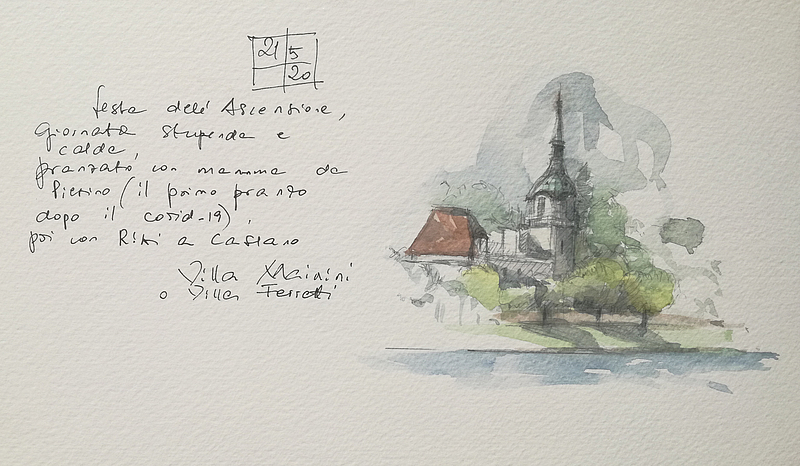 21 5
20
festa dell'Ascensione,
giornata stupenda e
calda,
pranzato con mamma da
Pierino (il primo pranzo
dopo il covid-19),
poi con Riki a Caslano
Villa Mainini
o Villa Ferretti